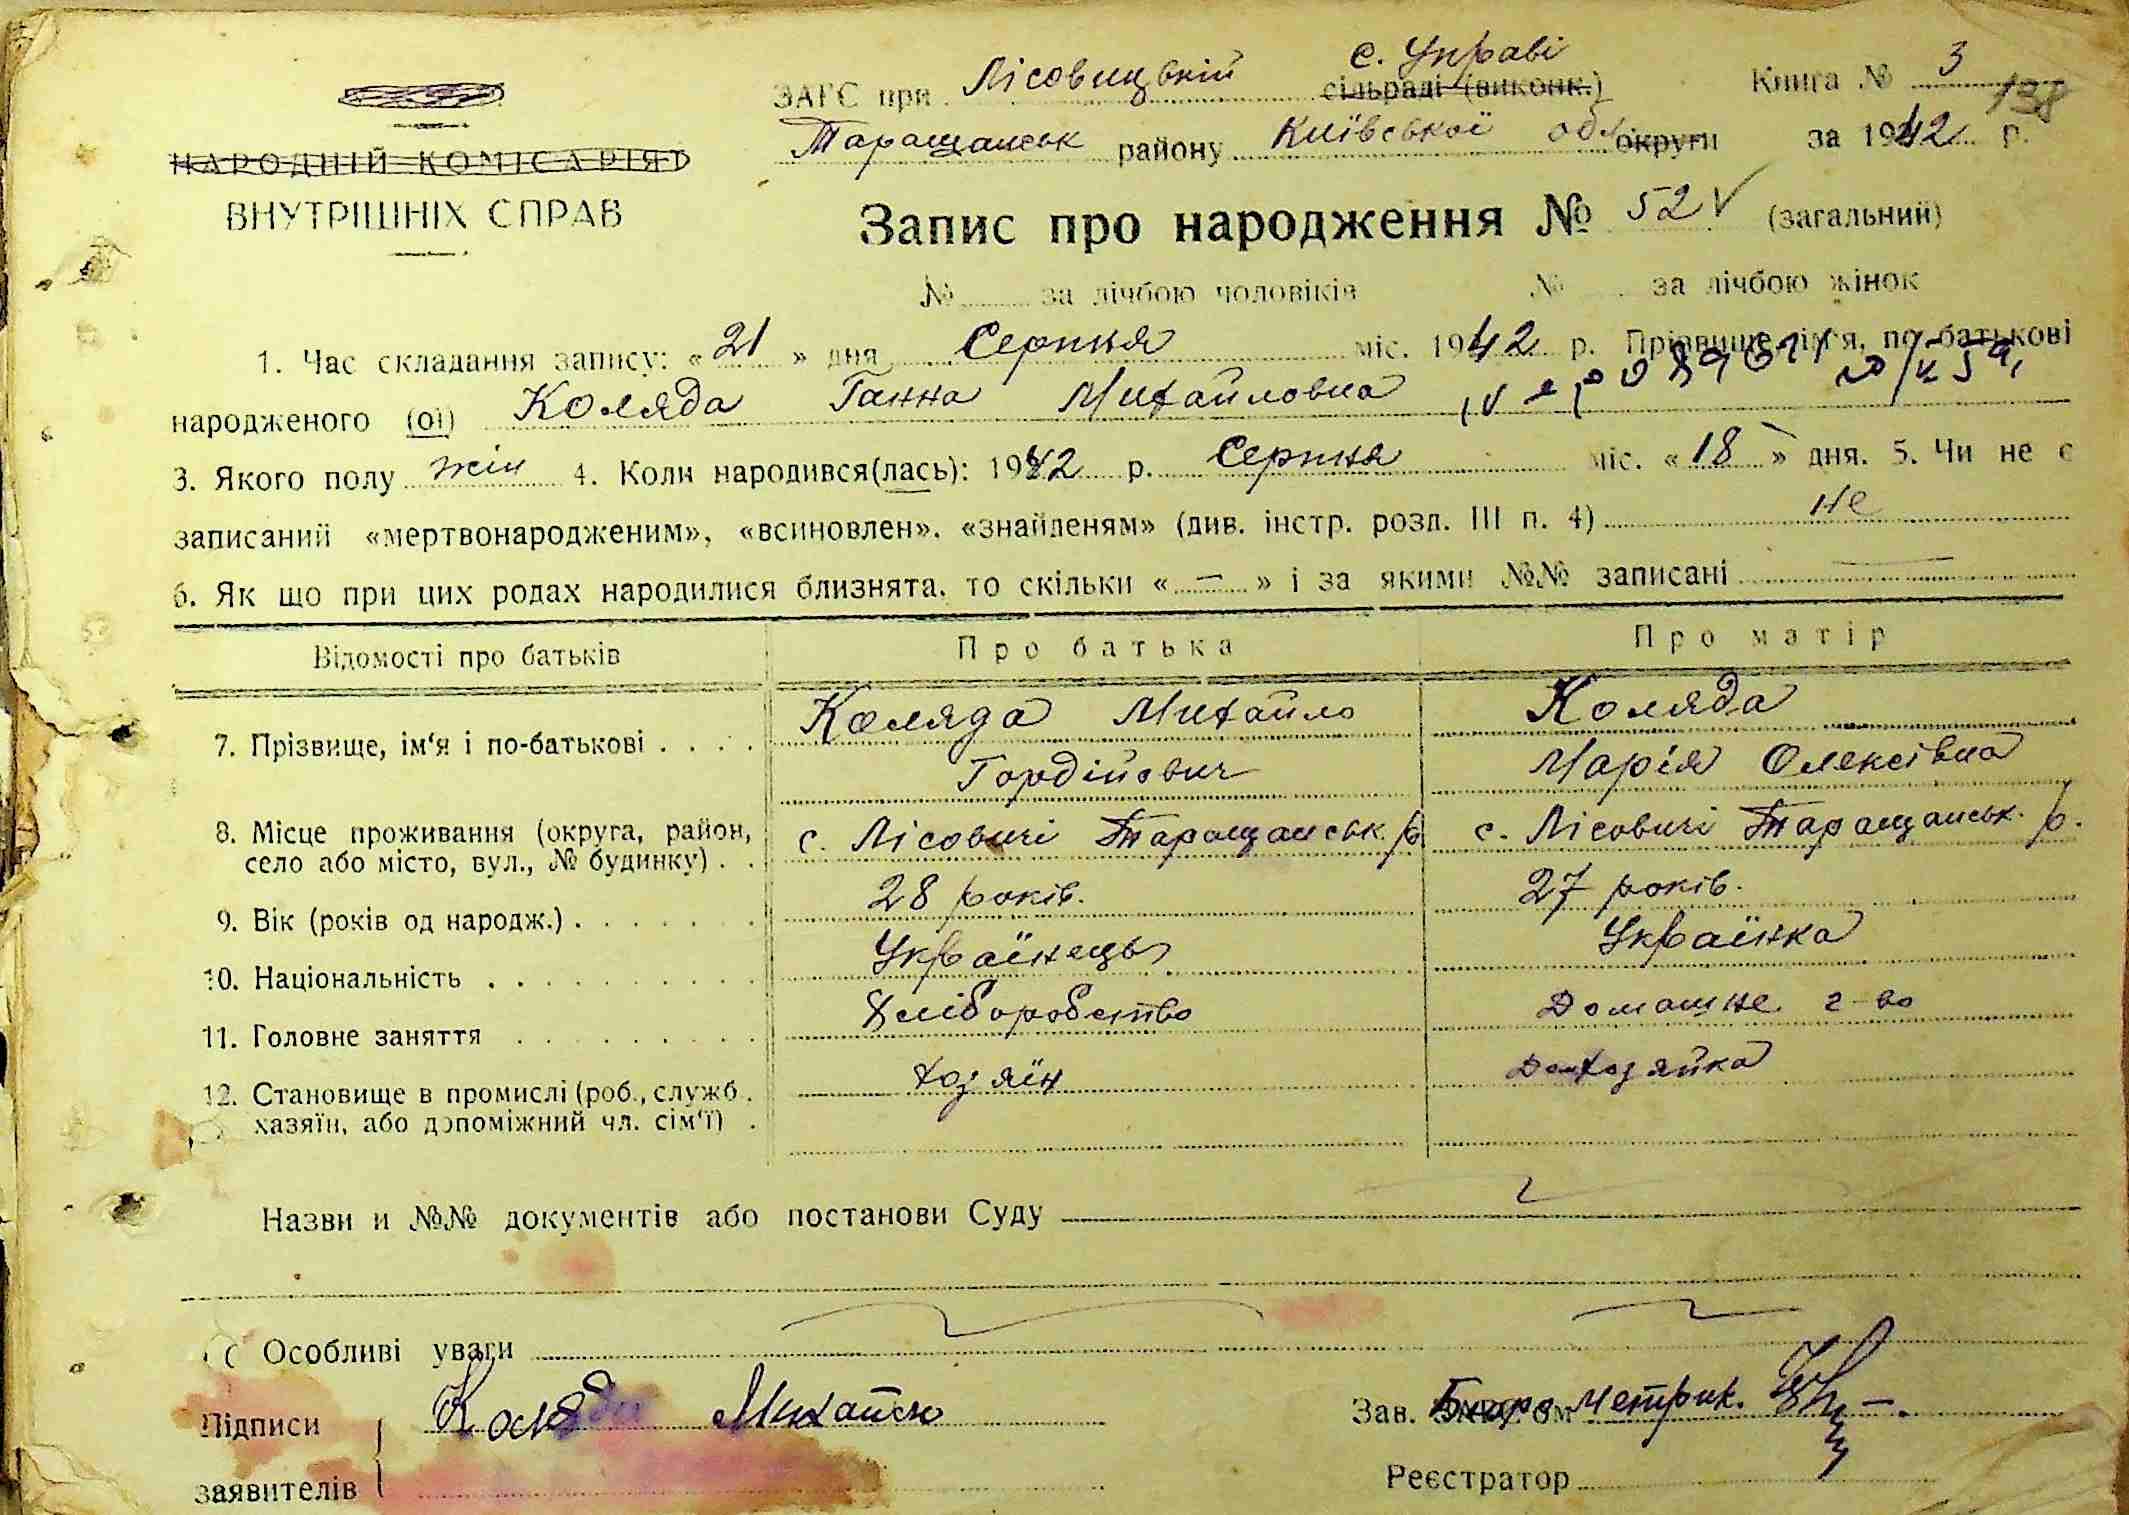 ЗАГС при Лісовицькій с. Управі сільраді (виконк.) Книга № 3
138
Таращанськ району Київської обл. округи за 1942 р.
НАРОДНІЙ КОМІСАРІЯТ
ВНУТРІШНІХ СПРАВ
Запис про народження № 52 V (загальний)
№ за лічбою чоловіків № за лічбою жінок
1. Час складання запису: « 21 » дня Серпня міс. 1942 р. Прізвище, ім'я, по-батькові
народженого (ої) Коляда Ганна Михайловна
3. Якого полу жін 4. Коли народився(лась): 1942 р. Серпня міс. « 18 » дня. 5. Чи не є
записаний «мертвонародженим», «всиновлен», «знайденям» (див. інстр. розд. III п. 4) не
6. Як що при цих родах народилися близнята, то скільки « — » і за якими №№ записані —
Відомості про батьків Про батька Про матір
7. Прізвище, ім'я і по-батькові . . . . Коляда Михайло Коляда
Гордійович Марія Олексівна
8. Місце проживання (округа, район, с. Лісовичі Таращанськ. р. с. Лісовичі Таращанськ. р.
село або місто, вул., № будинку) . .
9. Вік (років од народж.) . . . . . . . 28 років. 27 років.
10. Національність . . . . . . . . . . Українець Українка
11. Головне заняття . . . . . . . . . Хліборобство Домашнє г-во
12. Становище в промислі (роб., служб. хозяїн Домхозяйка
хазяїн, або допоміжний чл. сім'ї) .
Назви и №№ документів або постанови Суду
Особливі уваги
Підписи Коляда Михайло Зав. Бюро метрик.
заявителів Реєстратор